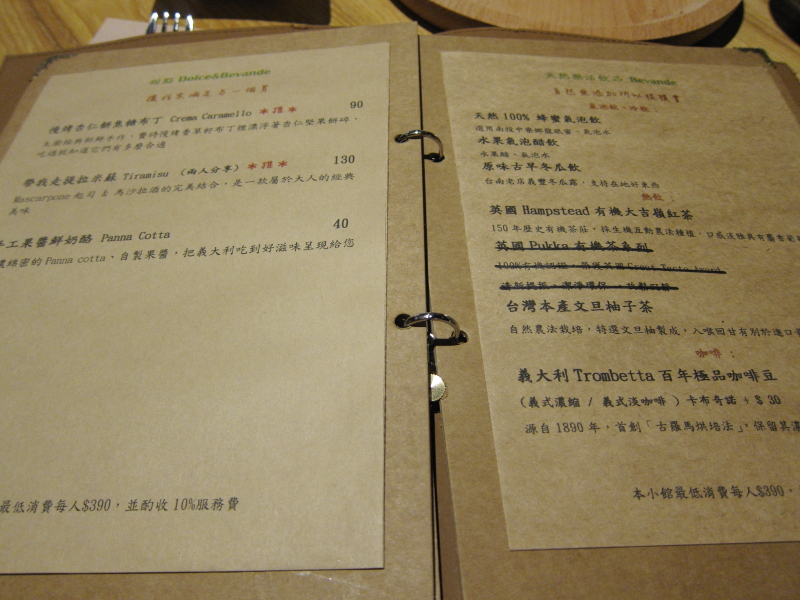 甜點 Dolce&Bevande
慢烤杏仁餅焦糖布丁 Crema Caramello *推* 90
吃過就知道它們有多麼合適
帶我走提拉米蘇 Tiramisu (兩人分享) *推* 130
Mascarpone 起司 & 馬沙拉酒的完美結合，是一款屬於大人的經典
美味
手工果醬鮮奶酪 Panna Cotta 40
濃綿密的 Panna cotta、自製果醬，把義大利吃到好滋味呈現給您
最低消費每人$390，並酌收 10%服務費
天然樂活飲品 Bevande
氣泡飲、冷飲：
天然 100% 蜂蜜氣泡飲
水果氣泡醋飲
水果醋、氣泡水
原味古早冬瓜飲
台南老店義豐冬瓜露，支持在地好東西
熱飲：
英國 Hampstead 有機大吉嶺紅茶
150 年歷史有機茶莊，採生機互動農法種植，口感
英國 Pukka 有機茶系列
台灣本產文旦柚子茶
自然農法栽培，特選文旦柚製成，入喉回甘有別於進口
咖啡：
義大利 Trombetta 百年極品咖啡豆
(義式濃縮 / 義式淡咖啡 ) 卡布奇諾 + $ 30
源自 1890 年，首創「古羅馬烘培法」，保留其
本小館最低消費每人$390，